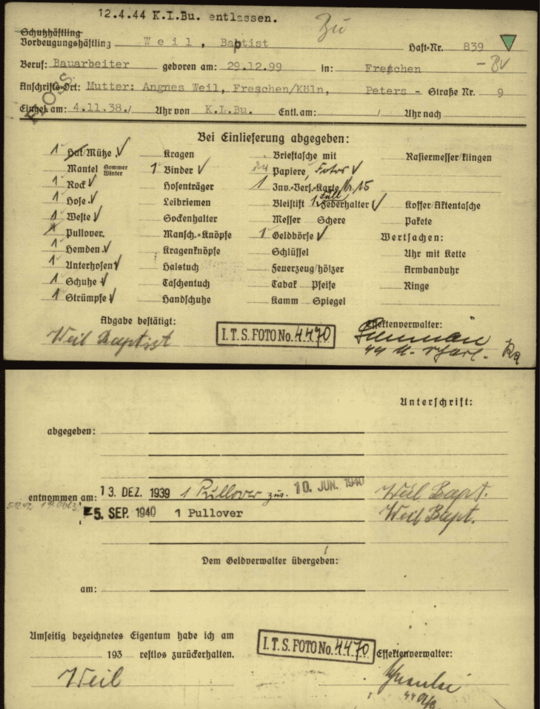 12.4.44 K.L.Bu. entlassen.
Schutzhäftling
Vorbeugungshäftling Weil, Baptist Haft-Nr. 839
Beruf: Bauarbeiter geboren am: 29.12.99 in: Freschen
Anschrifts-Ort: Mutter: Angnes Weil, Freschen/Köln, Peters - Straße Nr. 9
Eingel. am: 4.11.38. Uhr von K.L.Bu. Entl. am: Uhr nach
Bei Einlieferung abgegeben:
1 Hut/Mütze Kragen Brieftasche mit Rasiermesser/klingen
Mantel Sommer Winter 1 Binder Papiere, Fotos
1 Rock Hosenträger 1 Inv.-Vers.-Karte
1 Hose Leibriemen Bleistift 1 Füll Federhalter Koffer Aktentasche
1 Weste Sockenhalter Messer Schere Pakete
Pullover Mansch.-Knöpfe 1 Geldbörse Wertsachen:
1 Hemden Kragenknöpfe Schlüssel Uhr mit Kette
1 Unterhosen Halstuch Feuerzeug/hölzer Armbanduhr
1 Schuhe Taschentuch Tabak Pfeife Ringe
1 Strümpfe Handschuhe Kamm Spiegel
Abgabe bestätigt: Effektenverwalter:
Weil Baptist I.T.S. FOTO No. 4470
Unterschrift:
abgegeben:
entnommen am: 13. DEZ. 1939 1 Pullover zur. 10. JUN. 1940 Weil Bapt.
5. SEP. 1940 1 Pullover Weil Bapt.
Dem Geldverwalter übergeben:
am:
Umseitig bezeichnetes Eigentum habe ich am
193 restlos zurückerhalten. I.T.S. FOTO No. 4470 Effektenverwalter:
Weil